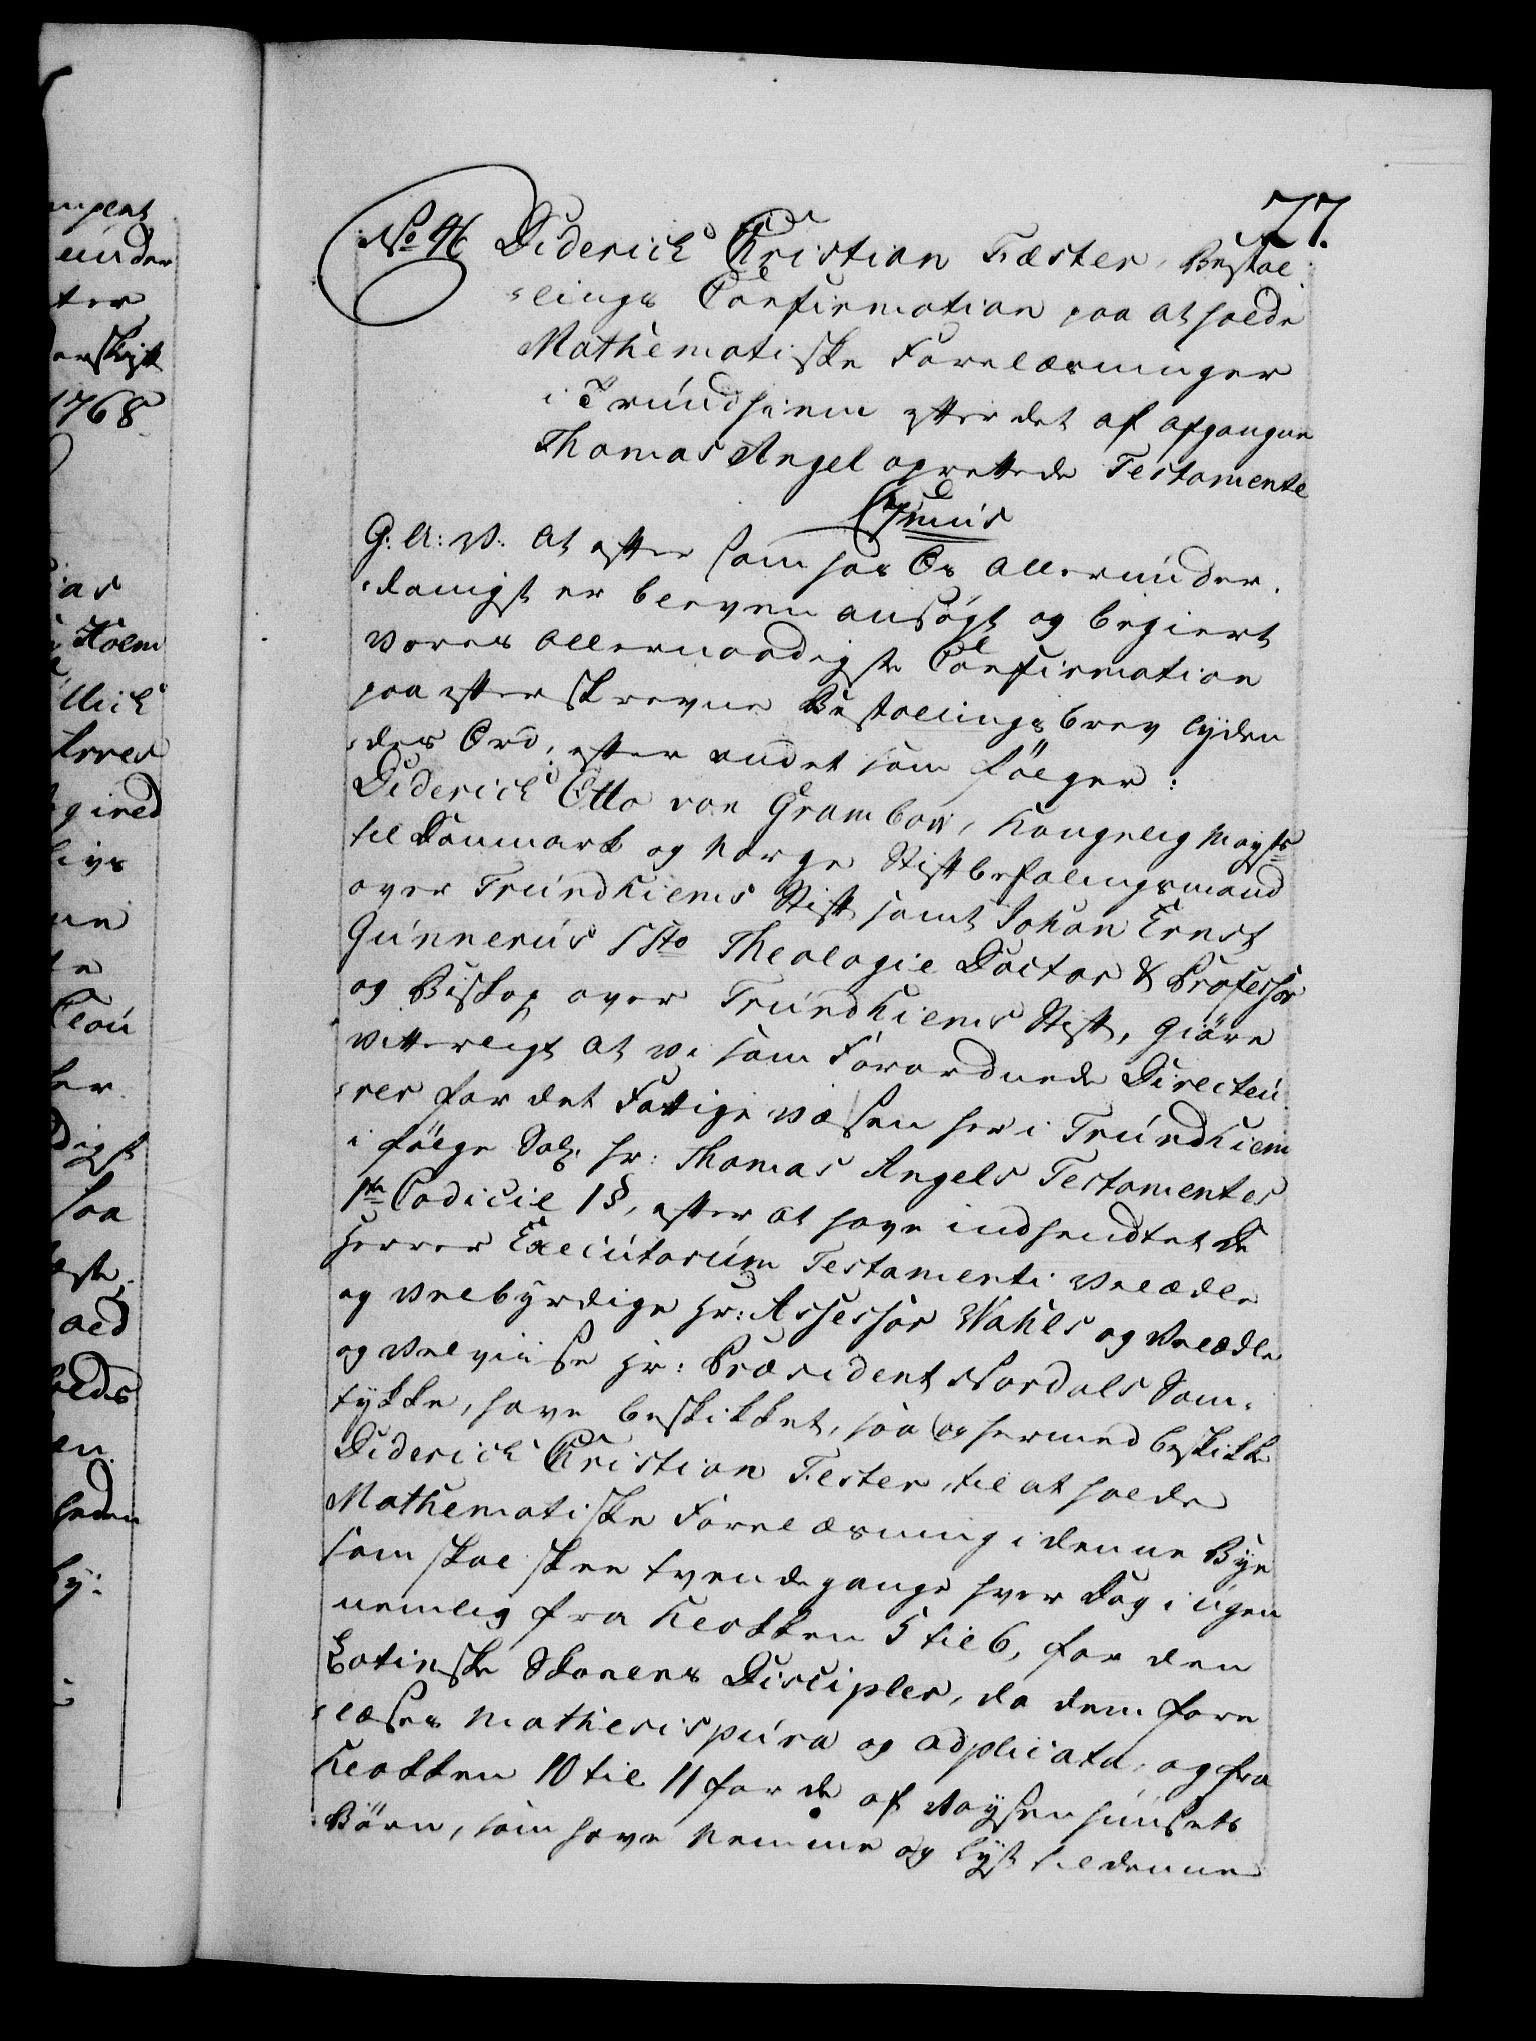 77.
No 46 Diderich Christian Fæster, Bestal¬
¬lings Confirmation paa at holde
Mathematiske Forelæsninger
i Trundhiem efter det af afgangne
Thomas Angel oprettede Testamente
G: A: V. At efter som hos Os Allerunder¬
¬danigst er bleven ansögt og begiert
Vores Allernaadigste Confirmation
paa efterskrevne Bestallingsbrev lyden
¬des Ord, efter andet som fölger:
Diderich Otto von Grambow, Kongelig Mayts
til Danmark og Norge Stiftbefalingsmand
over Trundhiems Stift samt Johan Ernst
Gunnerus SSto Theologie Doctor & Professor
og Biskop over Trundhiems Stift, Giöre
vitterligt at vi som Forordnede Directeu¬
¬rer for det Fattige væsen her i Trundhiem
i fölge Sal. Hr: Thomas Angels Testamentes
1te Codicil 1 §, efter at have indhendtet De
Herrer Executorum Testamenti Velædle
og Velbyrdige Hr: Assessor Wahls og Velædle
og Velviise Hr: Præsident Nordals Sam¬
tykke, have beskikket, saa og hermed beskikke
Diderich Christian Fester, til at holde
Mathematiske Forelæsning i denne Bye
som skal skee tvende gange hver Dag i Ugen
nemlig fra Klokken 5 til 6, for den
Latinske Skoeles Discipler, da dem fore
¬læses Mathesis pura og adplicata, og fra
Klokken 10 til 11 for de af Waysenhuusets
Börn, som have Nemme og Lyst til denne
1768
Holm
saa